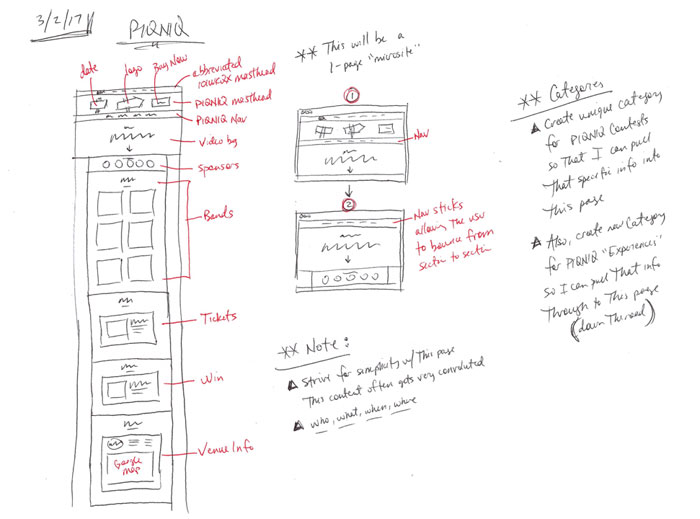 3/2/17
PIQNIQ
date
logo
Buy Now
abbreviated
101WKQX masthead
PIQNIQ masthead
PIQNIQ Nav
Video bg
Sponsors
Bands
Tickets
Win
Venue Info
Google
map
** This will be a
1-page "microsite"
1
Nav
2
Nav sticks
allowing the user
to bounce from
section to section
** Note:
Strive for simplicity w/ This page
This content often gets very convoluted
who, what, when, where
** Categories
Create unique category
for PIQNIQ Contests
so that I can pull
That specific info into
this page
Also, create new Category
for PIQNIQ "Experiences"
so I can pull That info
Through to This page
(down The road)